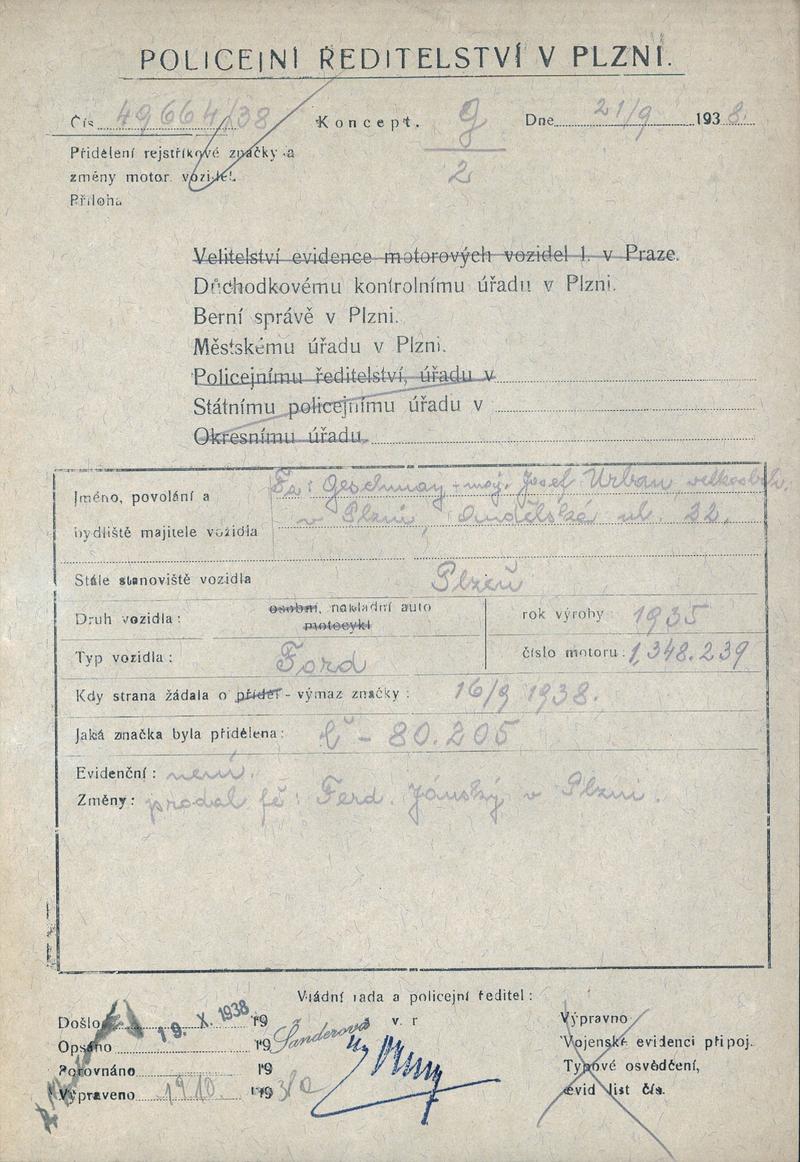 POLICEJNÍ ŘEDITELSTVÍ V PLZNI.
Čís. 49664/38 Koncept. 9/2 Dne 21/9 1938.
Přidělení rejstříkové značky a
změny motor. vozidel.
Příloha
Velitelství evidence motorových vozidel 1. v Praze.
Důchodkovému kontrolnímu úřadu v Plzni.
Berní správě v Plzni.
Městskému úřadu v Plzni.
Policejnímu ředitelství, úřadu v
Státnímu policejnímu úřadu v
Okresnímu úřadu
Jméno, povolání a Fa: Geschmay - maj. Josef Urban velkoobch.
bydliště majitele vozidla v Plzni Ondřejské ul. 22.
Stálé stanoviště vozidla Plzeň
Druh vozidla: osobní, nakladní auto rok výroby 1935
motocykl
Typ vozidla: Ford číslo motoru: 1,348.239
Kdy strana žádala o příděl - výmaz značky: 16/9 1938.
Jaká značka byla přidělena: Č - 80.205
Evidenční: není.
Změny: prodal fě: Ferd. Jánský v Plzni.
Vládní rada a policejní ředitel:
Došlo 19. X. 1938 19 v. r Výpravno
Opsáno 19 Šanderová Vojenské evidenci připoj.
Porovnáno 19 Typové osvědčení,
Vypraveno 19 10. 19 38 evid list čís.